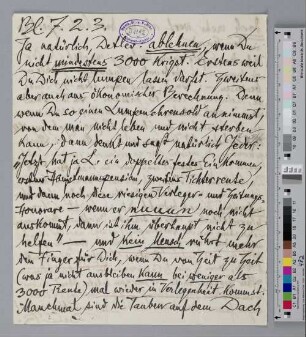 Bl. 7. 2. 3.
Ja natürlich, Detlev: ablehnen, wenn Du
nicht mindestens 3000 kriegst. Erstens weil
Du Dich nicht lumpen lassen darfst. Zweitens
aber auch aus ökonomischer Berechnung. Denn
wenn Du so einen Lumpenehrensold annimmst,
von dem man nicht leben und nicht sterben
kann, dann denkt und sagt natürlich Jeder:
jetzt hat ja L. ein doppeltes festes Einkommen,
erstens pension, zweitens Dichterrente,
und dann noch diese riesigen Verleger- und Zeitungs-
Honorare – wenn er nuuun noch nicht
auskommt, dann ist ihm überhaupt nicht zu
helfen" – und kein Mensch rührt mehr
den Finger für Dich, wenn Du von Zeit zu Zeit
(was ja nicht ausbleiben kann bei weniger als
3000 Rente) mal wieder in Verlegenheit kommst.
Manchmal sind die Tauben auf dem Dach